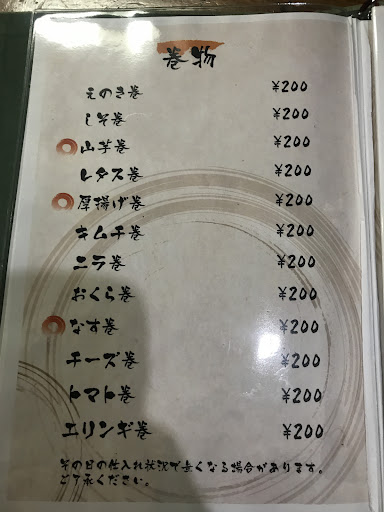 巻物
えのき巻 ¥200
しそ巻 ¥200
山芋巻 ¥200
レタス巻 ¥200
厚揚げ巻 ¥200
キムチ巻 ¥200
ニラ巻 ¥200
おくら巻 ¥200
なす巻 ¥200
チーズ巻 ¥200
トマト巻 ¥200
エリンギ巻 ¥200
その日の仕入れ状況で無くなる場合があります。
ご了承ください。